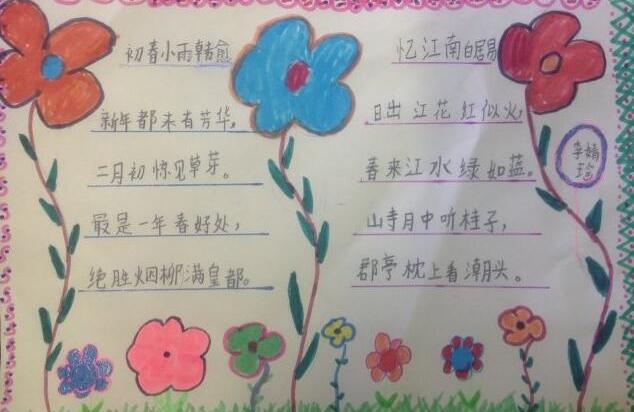 初春小雨韩愈
新年都未有芳华，
二月初惊见草芽。
最是一年春好处，
绝胜烟柳满皇都。
忆江南白居易
日出江花红似火，
春来江水绿如蓝。
山寺月中听桂子，
郡亭枕上看潮头。
李婧